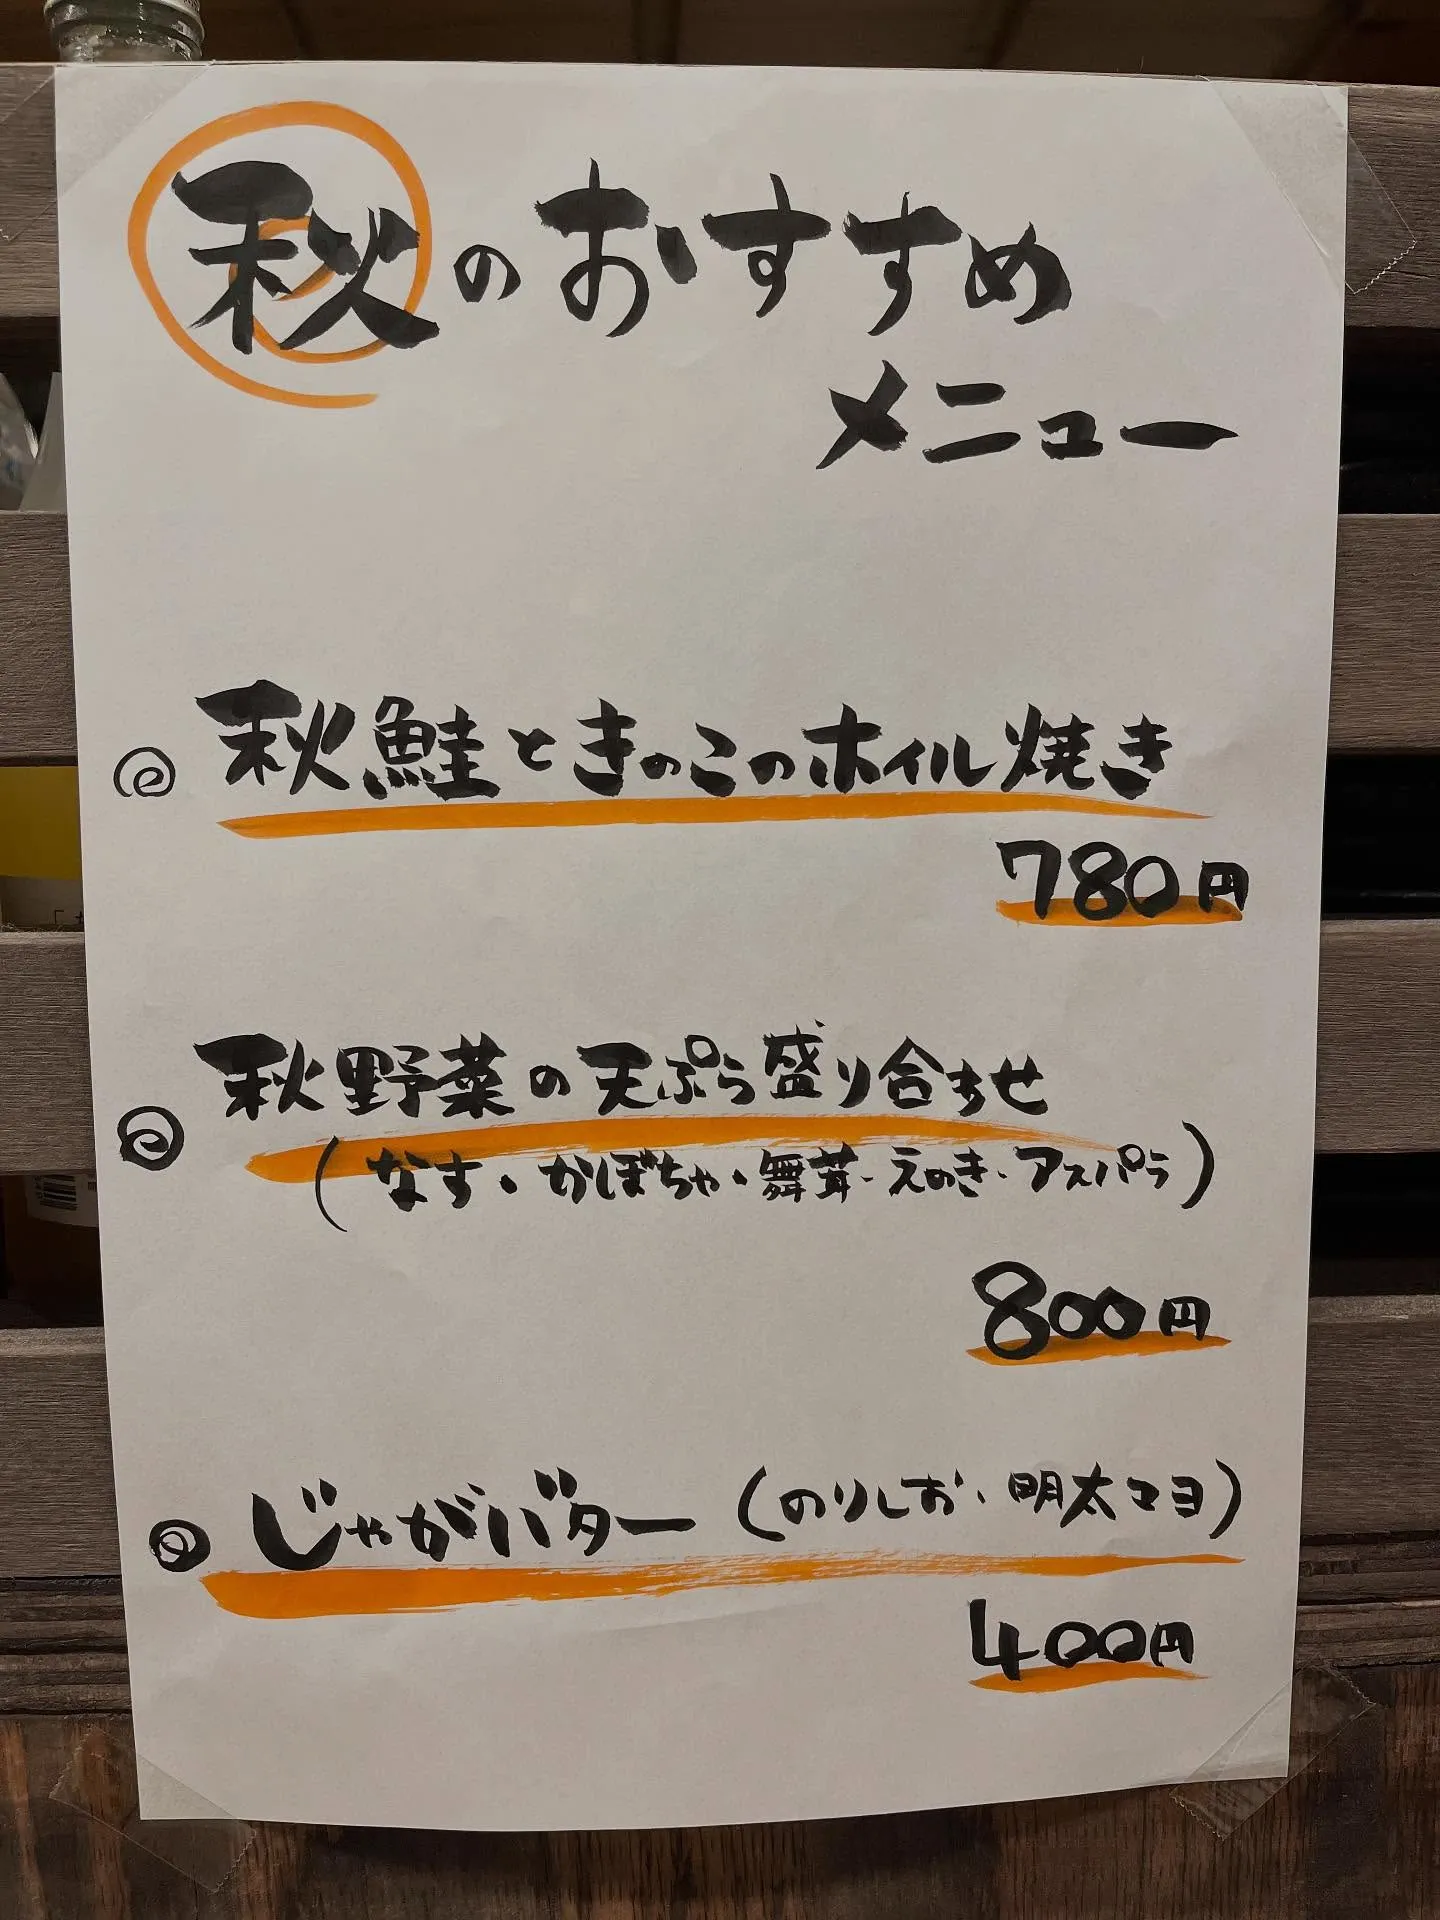 秋のおすすめ
メニュー
秋鮭ときのこのホイル焼き
780円
秋野菜の天ぷら盛り合わせ
(なす・かぼちゃ・舞茸・えのき・アスパラ)
800円
じゃがバター(のりしお・明太マヨ)
400円